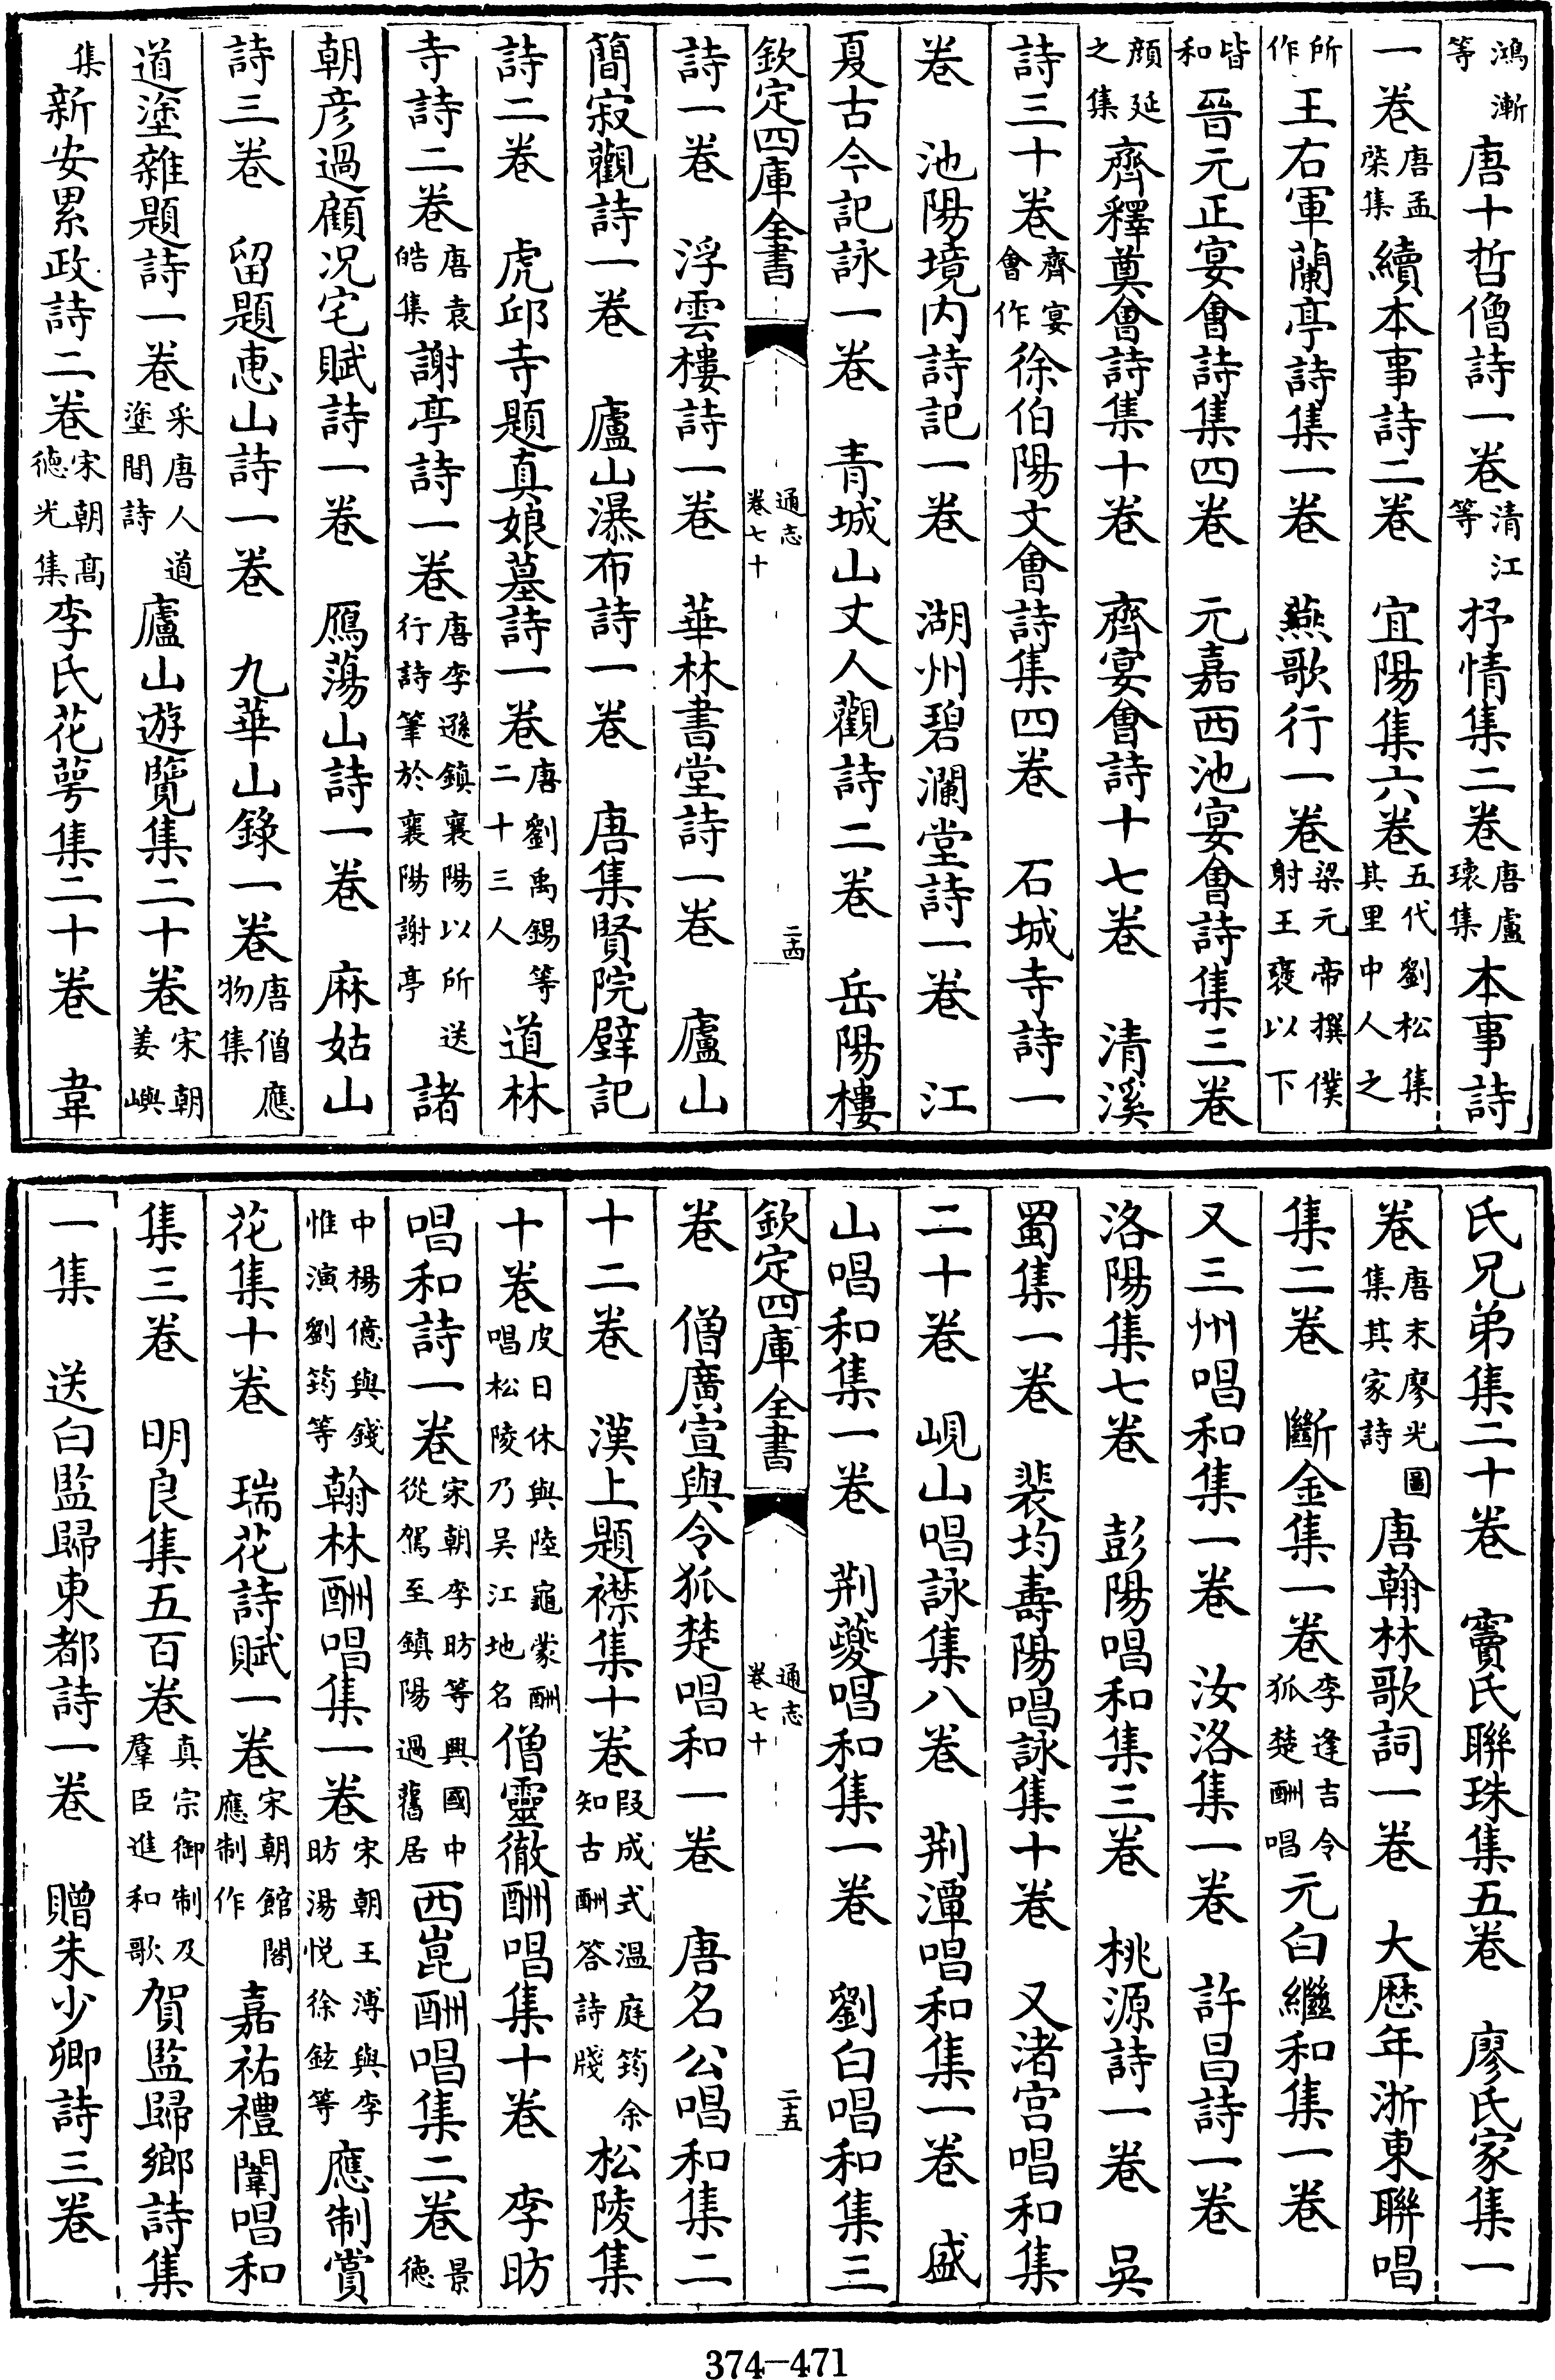 鴻漸等唐十哲僧詩一卷清江等抒情集二卷唐盧瓌集本事詩
一卷唐孟棨集續本事詩二卷 宜陽集六卷五代劉松集其里中人之
所作王右軍蘭亭詩集一卷 燕歌行一卷梁元帝撰僕射王褒以下
皆和晉元正宴會詩集四卷 元嘉西池宴會詩集三卷
顔延之集齊釋奠會詩集十卷 齊宴會詩十七卷 清溪
詩三十卷齊宴會作徐伯陽文會詩集四卷 石城寺詩一
卷 池陽境内詩記一卷 湖州碧瀾堂詩一卷 江
夏古今記詠一卷 青城山丈人觀詩二卷 岳陽樓
欽定四庫全書 通志卷七十 二十四
詩一卷 浮雲樓詩一卷 華林書堂詩一卷 廬山
簡寂觀詩一卷 廬山瀑布詩一卷 唐集賢院壁記
詩二卷 虎邱寺題真娘墓詩一卷唐劉禹錫等二十三人道林
寺詩二卷唐袁皓集謝亭詩一卷唐李遜鎮襄陽以所送行詩筆於襄陽謝亭諸
朝彦過顧況宅賦詩一卷 鴈蕩山詩一卷 麻姑山
詩三卷 留題恵山詩一卷 九華山錄一卷唐僧應物集
道塗雜題詩一卷采唐人道塗間詩廬山遊覽集二十卷宋朝姜嶼
集新安累政詩二卷宋朝高徳光集李氏花萼集二十卷 韋
氏兄弟集二十卷 竇氏聯珠集五卷 廖氏家集一
卷唐末廖光圖集其家詩唐翰林歌詞一卷 大歴年浙東聯唱
集二卷 斷金集一卷李逢吉令狐楚酬唱元白繼和集一卷
又三州唱和集一卷 汝洛集一卷 許昌詩一卷
洛陽集七卷 彭陽唱和集三卷 桃源詩一卷 吳
蜀集一卷 裴均壽陽唱詠集十卷 又渚宫唱和集
二十卷 峴山唱詠集八卷 荆潭唱和集一卷 盛
山唱和集一卷 荆夔唱和集一卷 劉白唱和集三
欽定四庫全書 通志卷七十 二十五
卷 僧廣宣與令狐楚唱和一卷 唐名公唱和集二
十二卷 漢上題襟集十卷段成式溫庭筠余知古酬答詩牋松陵集
十卷皮日休與陸龜蒙酬唱松陵乃吴江地名僧靈徹酬唱集十卷 李昉
唱和詩一卷宋朝李昉等興國中從駕至鎮陽過舊居西崑酬唱集二卷景徳
中楊億與錢惟演劉筠等翰林酬唱集一卷宋朝王溥與李昉湯悦徐鉉等應制賞
花集十卷 瑞花詩賦一卷宋朝館閣應制作嘉祐禮闈唱和
集三卷 明良集五百卷真宗御制及羣臣進和歌賀監歸鄉詩集
一集 送白監歸東都詩一卷 贈朱少卿詩三卷
374-471